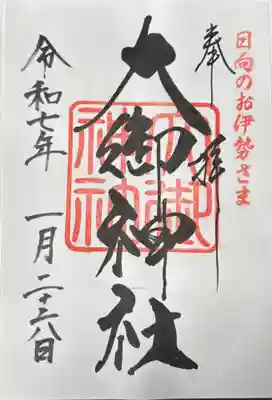 日向のお伊勢さま
奉拝
大御神社
大御神社
令和七年 一月二十六日